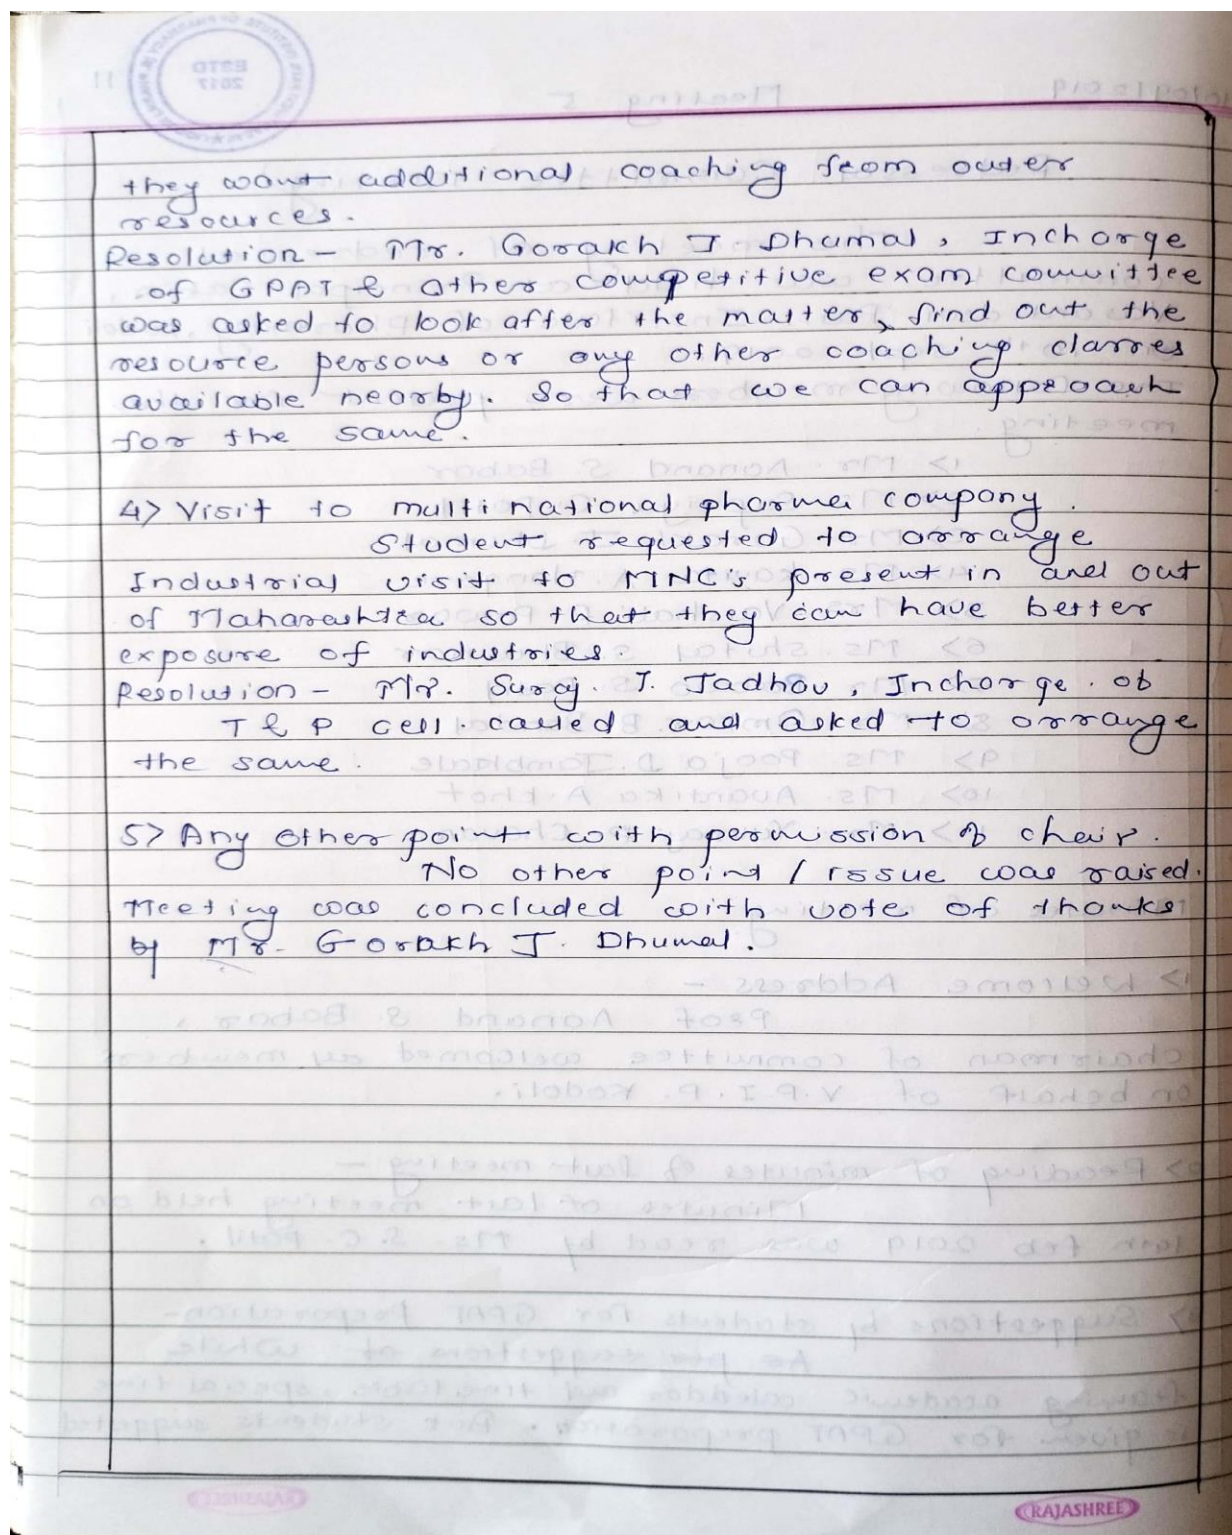 they want additional coaching from outer
resources.
Resolution - Mr. Gorakh J Dhumal, Incharge
of GPAT & other competitive exam committee
was asked to look after the matter, find out the
resource persons or any other coaching classes
available nearby. So that we can approach
for the same.
4> Visit to multinational pharma company.
Student requested to arrange
Industrial visit to MNC's present in and out
of Maharashtra so that they can have better
exposure of industries.
Resolution - Mr. Suraj. T. Jadhav, Incharge. of
T & P cell called and asked to arrange
the same.
5> Any other point with permission of chair.
No other point / issue was raised.
Meeting was concluded with vote of thanks
by Mr. Gorakh J. Dhumal.
RAJASHREE